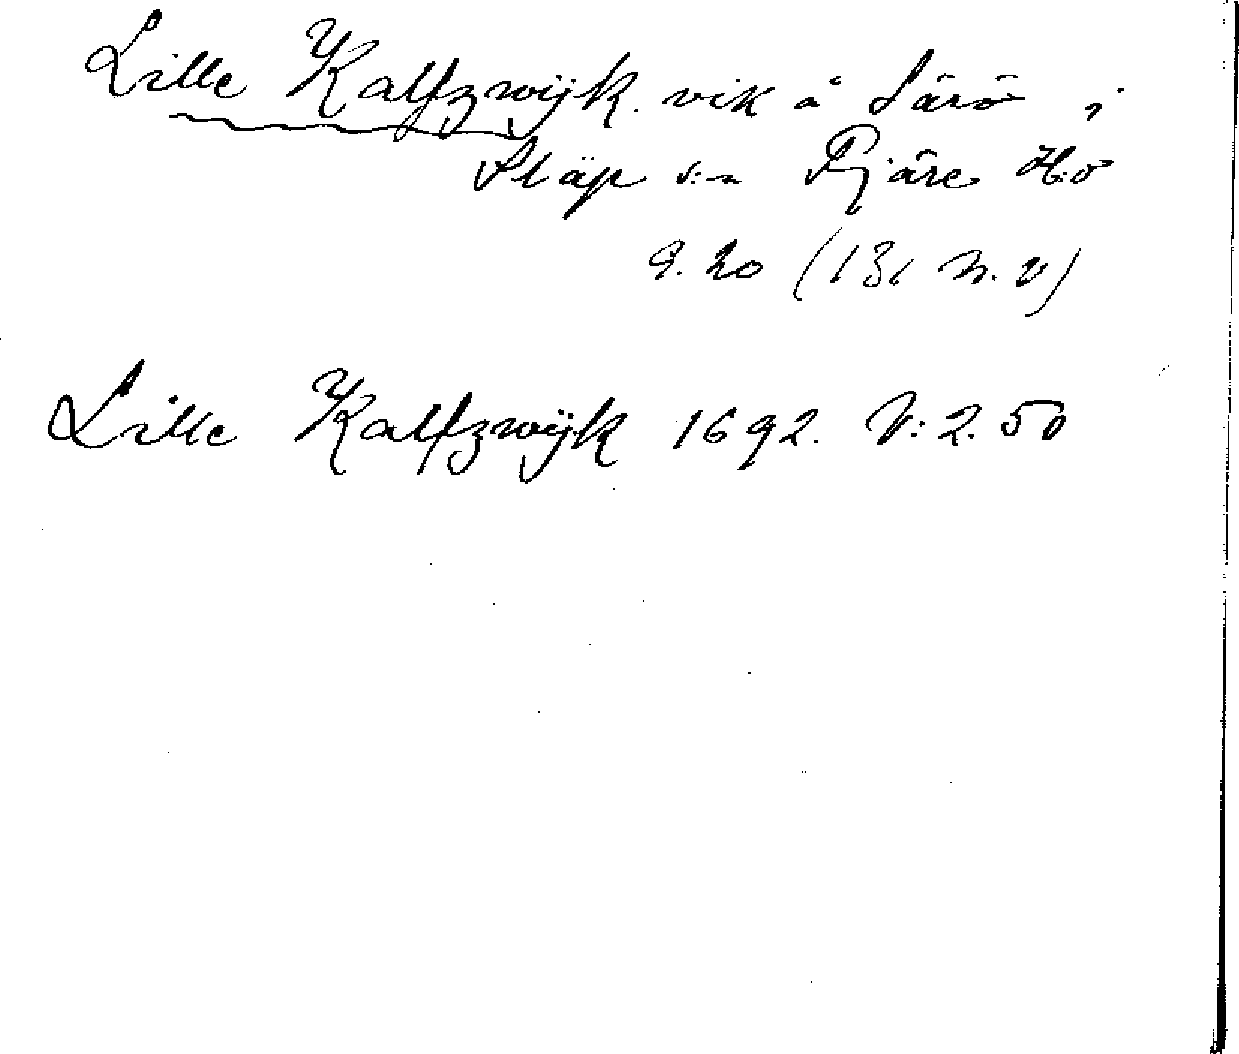 Lille Kalfzwijk. vik å Särö i
Släp s:n Fjäre Hd
g. 20 (131 N. V)
Lille Kalfzwÿk 1692. V: 2. 50